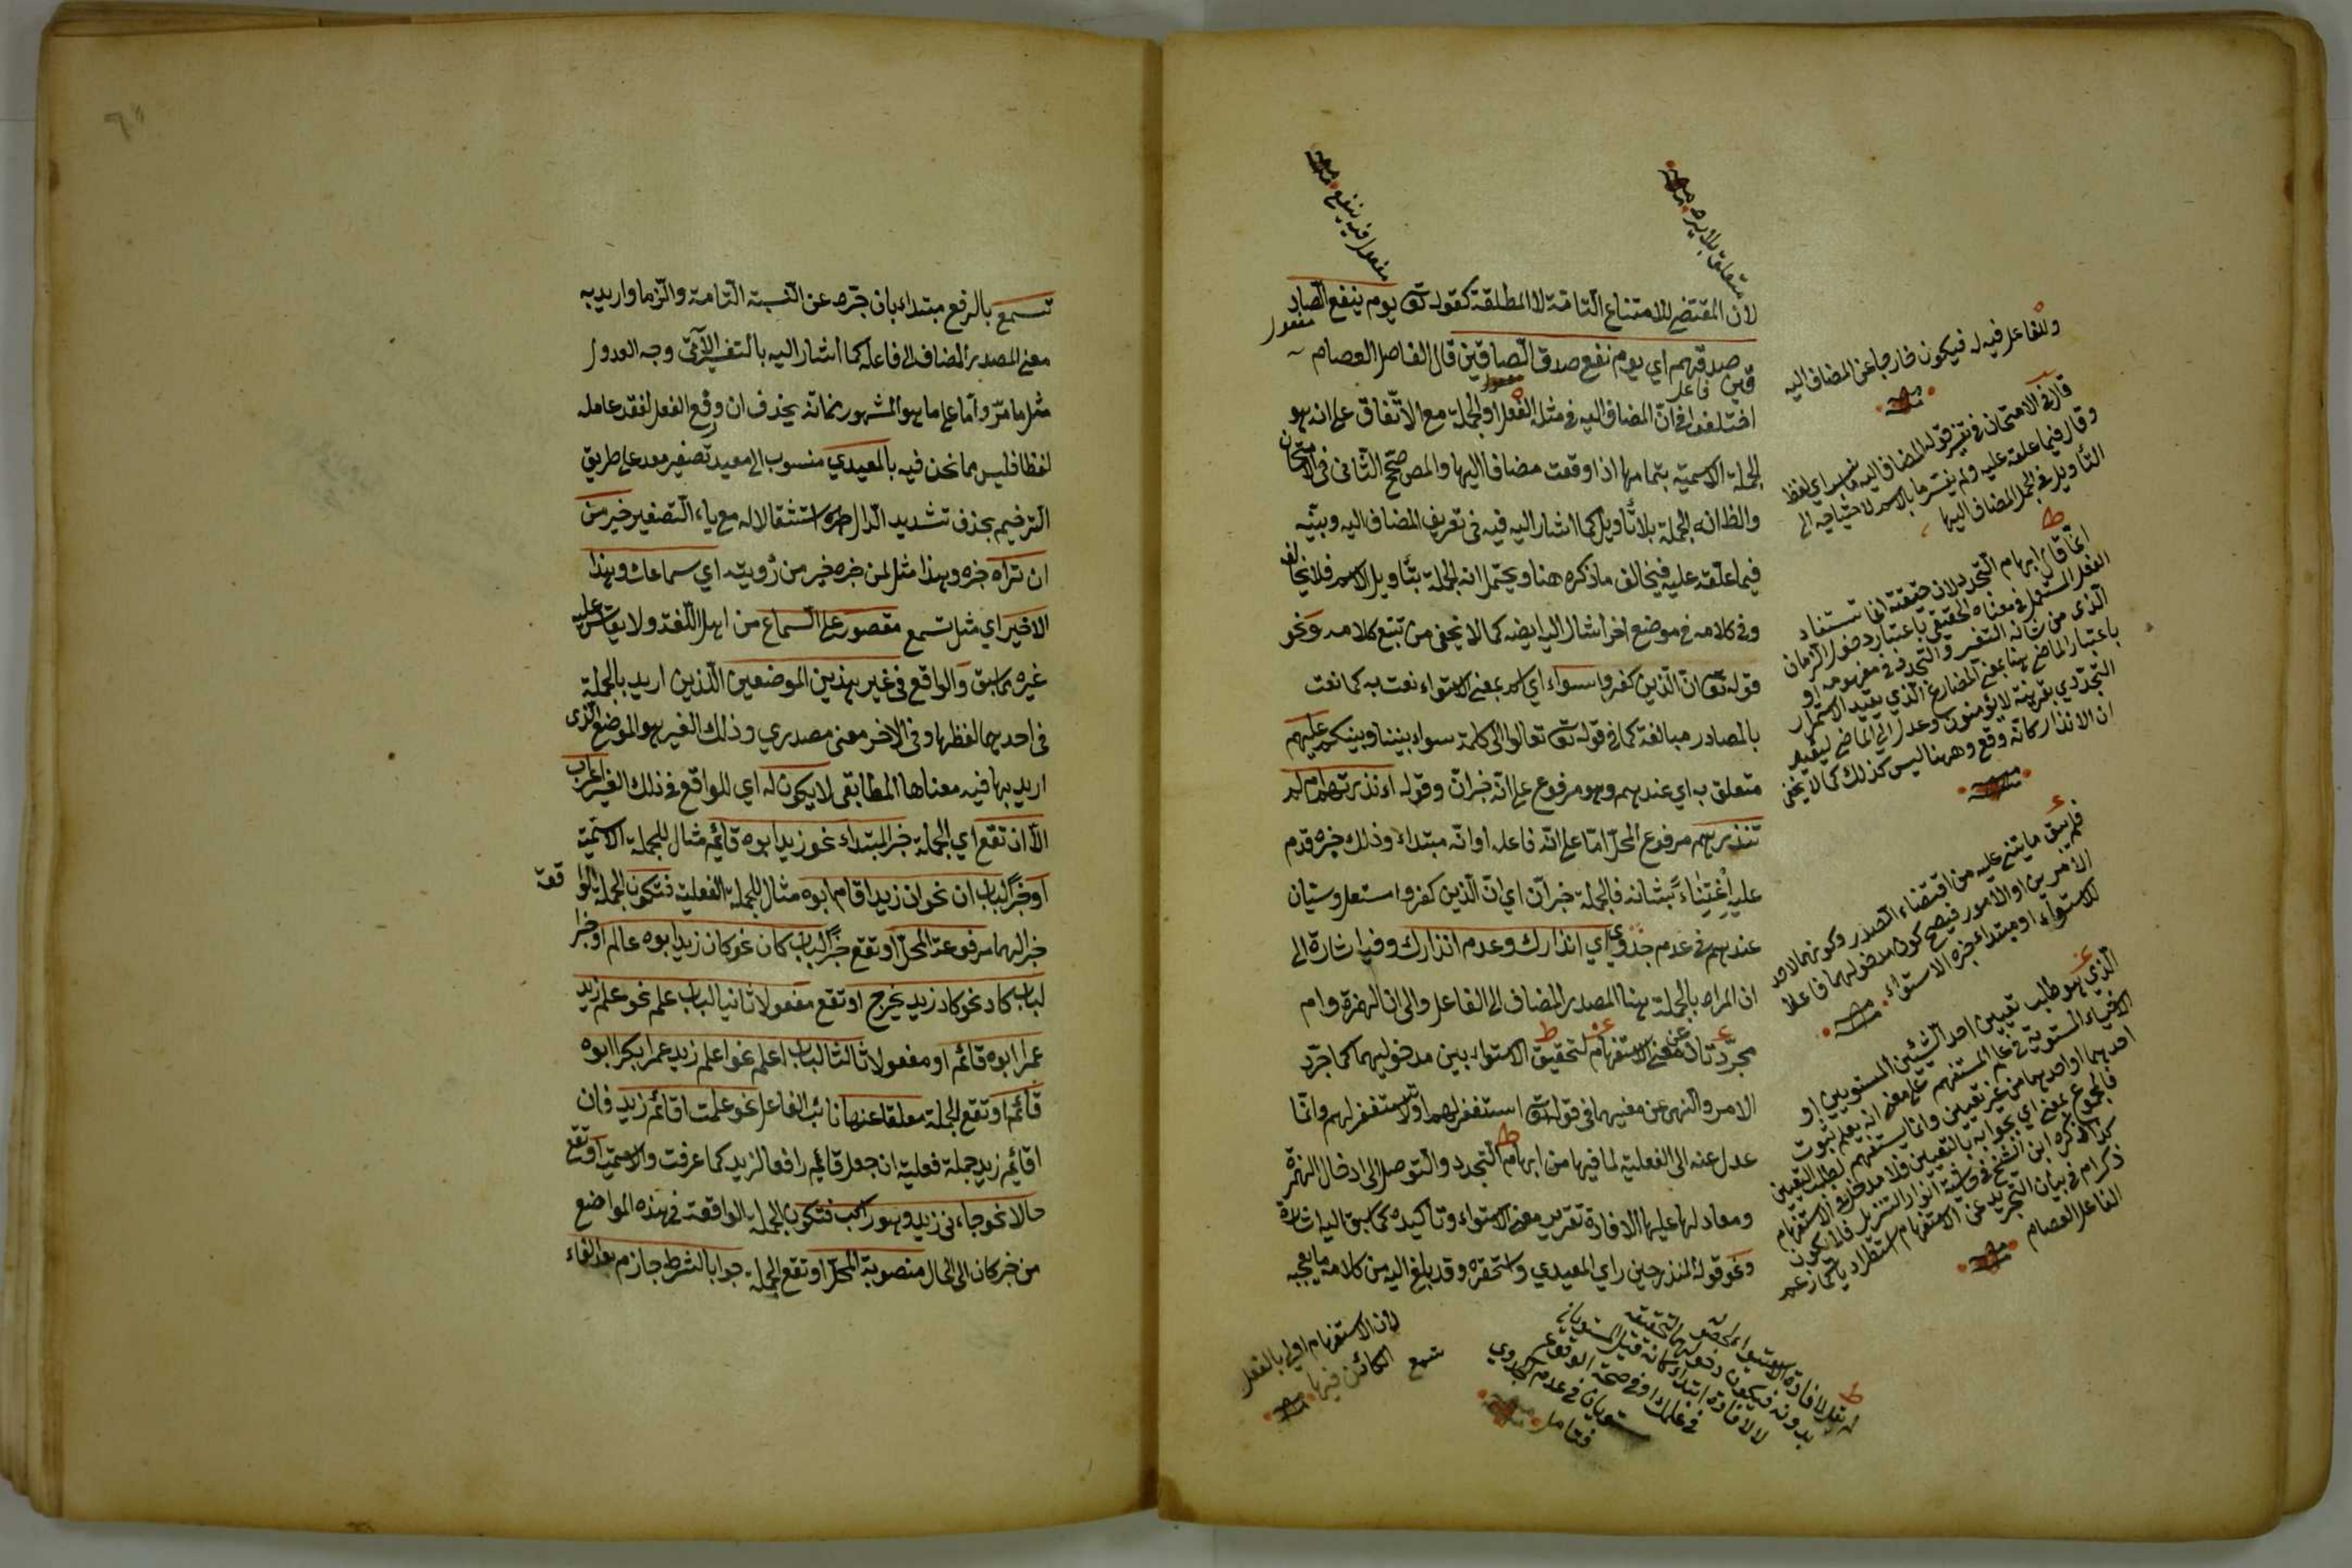 لان المقتضي للامتناع التامة لا المطلقة كقوله تعالى يوم ينفع الصاد
قين صدقهم اي يوم نفع صدق الصادقين قال الفاضل العصام
اختلفوا في ان المضاف اليه في مثله الفعل او الجملة مع الاتفاق على انه هو
الجملة الاسمية بتمامها اذا وقعت مضافا اليها والمص صحح الثاني في الامتحان
والظ انه الجملة بلا تأويل كما اشار اليه فيه في تعريف المضاف اليه وبينه
فيما علقه عليه فيخالف ما ذكره هنا ويحتمل انه الجملة بتأويل الاسم فلا يخالف
وفي كلامه في موضع اخر اشار اليه ايضا كما لا يخفى من تتبع كلامه ونحو
قوله تعالى ان الذين كفروا سواء اي اسم بمعنى الاستواء نعت به كما نعت
بالمصادر مبالغة كما في قوله تعالى تعالوا الى كلمة سواء بيننا وبينكم عليهم
متعلق به اي عندهم وهو مرفوع على انه خبر ان وقوله ءانذرتهم ام لم
تنذرهم مرفوع المحل اما على انه فاعله او انه مبتداء وذلك خبره قدم
عليه اعتناء بشانه فالجملة خبر ان اي ان الذين كفروا استعلى وسيان
عندهم في عدم جدوى اي انذارك وعدم انذارك وفيه اشارة الى
ان المراد بالجملة هنا المصدر المضاف الى الفاعل والى ان الهمزة وام
مجردتان عن معنى الاستفهام لتحقيق الاستواء بين مدخوليهما كما جرد
الامر والنهي عن معنيهما في قوله تعالى استغفر لهم او لا تستغفر لهم وانما
عدل عنه الى الفعلية لما فيها من ابهام التجدد والتوصل الى ادخال الهمزة
ومعادلها عليها لافادة تقرير معنى الاستواء وتأكيده كما سبق اليه اشارة
ونحو قوله المنذر حين راي المعيدي واستحقره وقد بلغ اليه من كلامه ما يعجبه
تسمع
متعلق بلا يرد
مفعل فيه ينفع
مفعول
فاعل
وللفاعل فيه له فيكون خارجا عن المضاف اليه
قال في الامتحان في تفسير قوله المضاف اليه
وقال فيما علقه عليه ولم يفسر ما بالاسم لاحتياجه الى
التأويل في الجمل المضاف اليها
انما قال ابهام التجدد لان حقيقته انما تستفاد
الفعل المستعمل في معناه الحقيقي باعتبار دخول الزمان
الذي من شانه التغير والتجدد في مفهومه او
باعتبار الماضي هنا بمعنى المضارع الذي يفيد الاستمرار
التجددي بقرينة لا يؤمنون وعدل الى الماضي ليفيد
ان الانذار كانه وقع وههنا ليس كذلك كما لا يخفى
فلم يبق ما يبتني عليه من اقتضاء التصدر وكونهما لاحد
الامرين او الامور فيصح كون مدخولهما فاعلا
للاستواء او مبتداء خبره الاستواء
الذي هو طلب تعيين احد الشيئين المستويين او
الاشياء المستوية في علم المستفهم على معنى انه يعلم ثبوت
احدهما او احدها من غير تعيين وانما يستفهم لطلب التعيين
الفاضل العصام
لان الاستفهام اولى بالفعل
الكائن فيها
فتامل
تسمع بالرفع مبتداء بان جرد عن النسبة التامة والزما واريد به
معنى المصدر المضاف الى فاعله كما اشار اليه بالتفسير الآتي وجه العدول
مثل ما مر واما على ما هو المشهور من انه بحذف ان ورفع الفعل لفقد عامله
لفظا فليس مما نحن فيه بالمعيدي منسوب الى معيد تصغير معد على طريق
الترخيم بحذف تشديد الدال استثقالا له مع ياء التصغير خير من
ان تراه خبره وهذا مثل لمن خبره خير من رؤيته اي سماعك وهذا
الاخير اي مثل تسمع مقصور على السماع من اهل اللغة ولا يقاس عليه
غيره مما سبق والواقع في غير هذين الموضعين اللذين اريد بالجملة
في احدهما لفظها وفي الاخر معنى مصدري وذلك الغير هو الموضع الذي
اريد بها فيه معناها المطابقي لا يكون له اي للواقع في ذلك الغير اعراب
الا ان تقع اي الجملة خبر المبتداء نحو زيد ابوه قائم مثال للجملة الاسمية
او خبرا لباب ان نحو ان زيدا قام ابوه مثال للجملة الفعلية فتكون الجملة الوا قعة
خبرا لهما مرفوعة المحل او تقع خبرا لباب كان نحو كان زيد ابوه عالم او خبرا
لباب كاد نحو كاد زيد يخرج او تقع مفعولا ثانيا لباب علم نحو علم زيد
عمرا ابوه قائم او مفعولا ثالثا لباب اعلم نحو اعلم زيد عمرا بكرا ابوه
قائم او تقع الجملة معلقا عنها نائب الفاعل نحو علمت اقائم زيد فان
اقائم زيد جملة فعلية ان جعل قائم رافعا لزيد كما عرفت والاسمية او تقع
حالا نحو جاءني زيد وهو راكب فتكون الجملة الواقعة في هذه المواضع
من خبر كان الى الحال منصوبة المحل او تقع الجملة جوابا لشرط جازم بعد الفاء